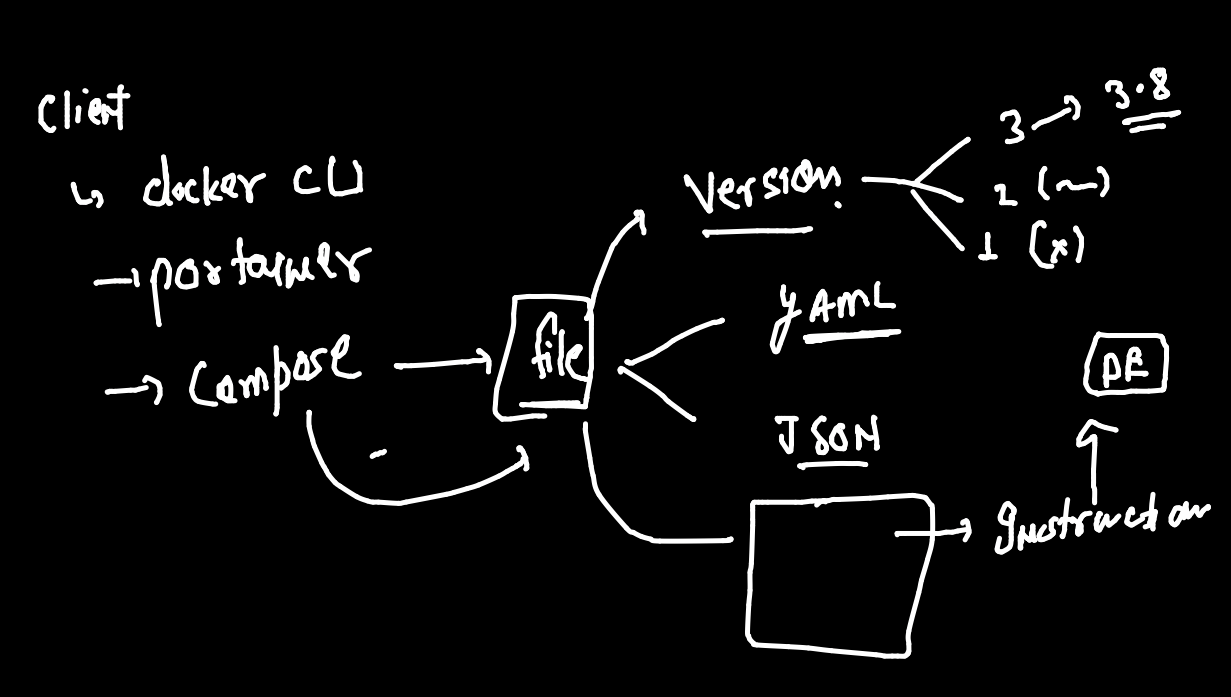 Client
↳ docker CLI
→ portainer
→ Compose
file
Version
3 → 3.8
2 (~)
1 (x)
YAML
JSON
DE
Instruction